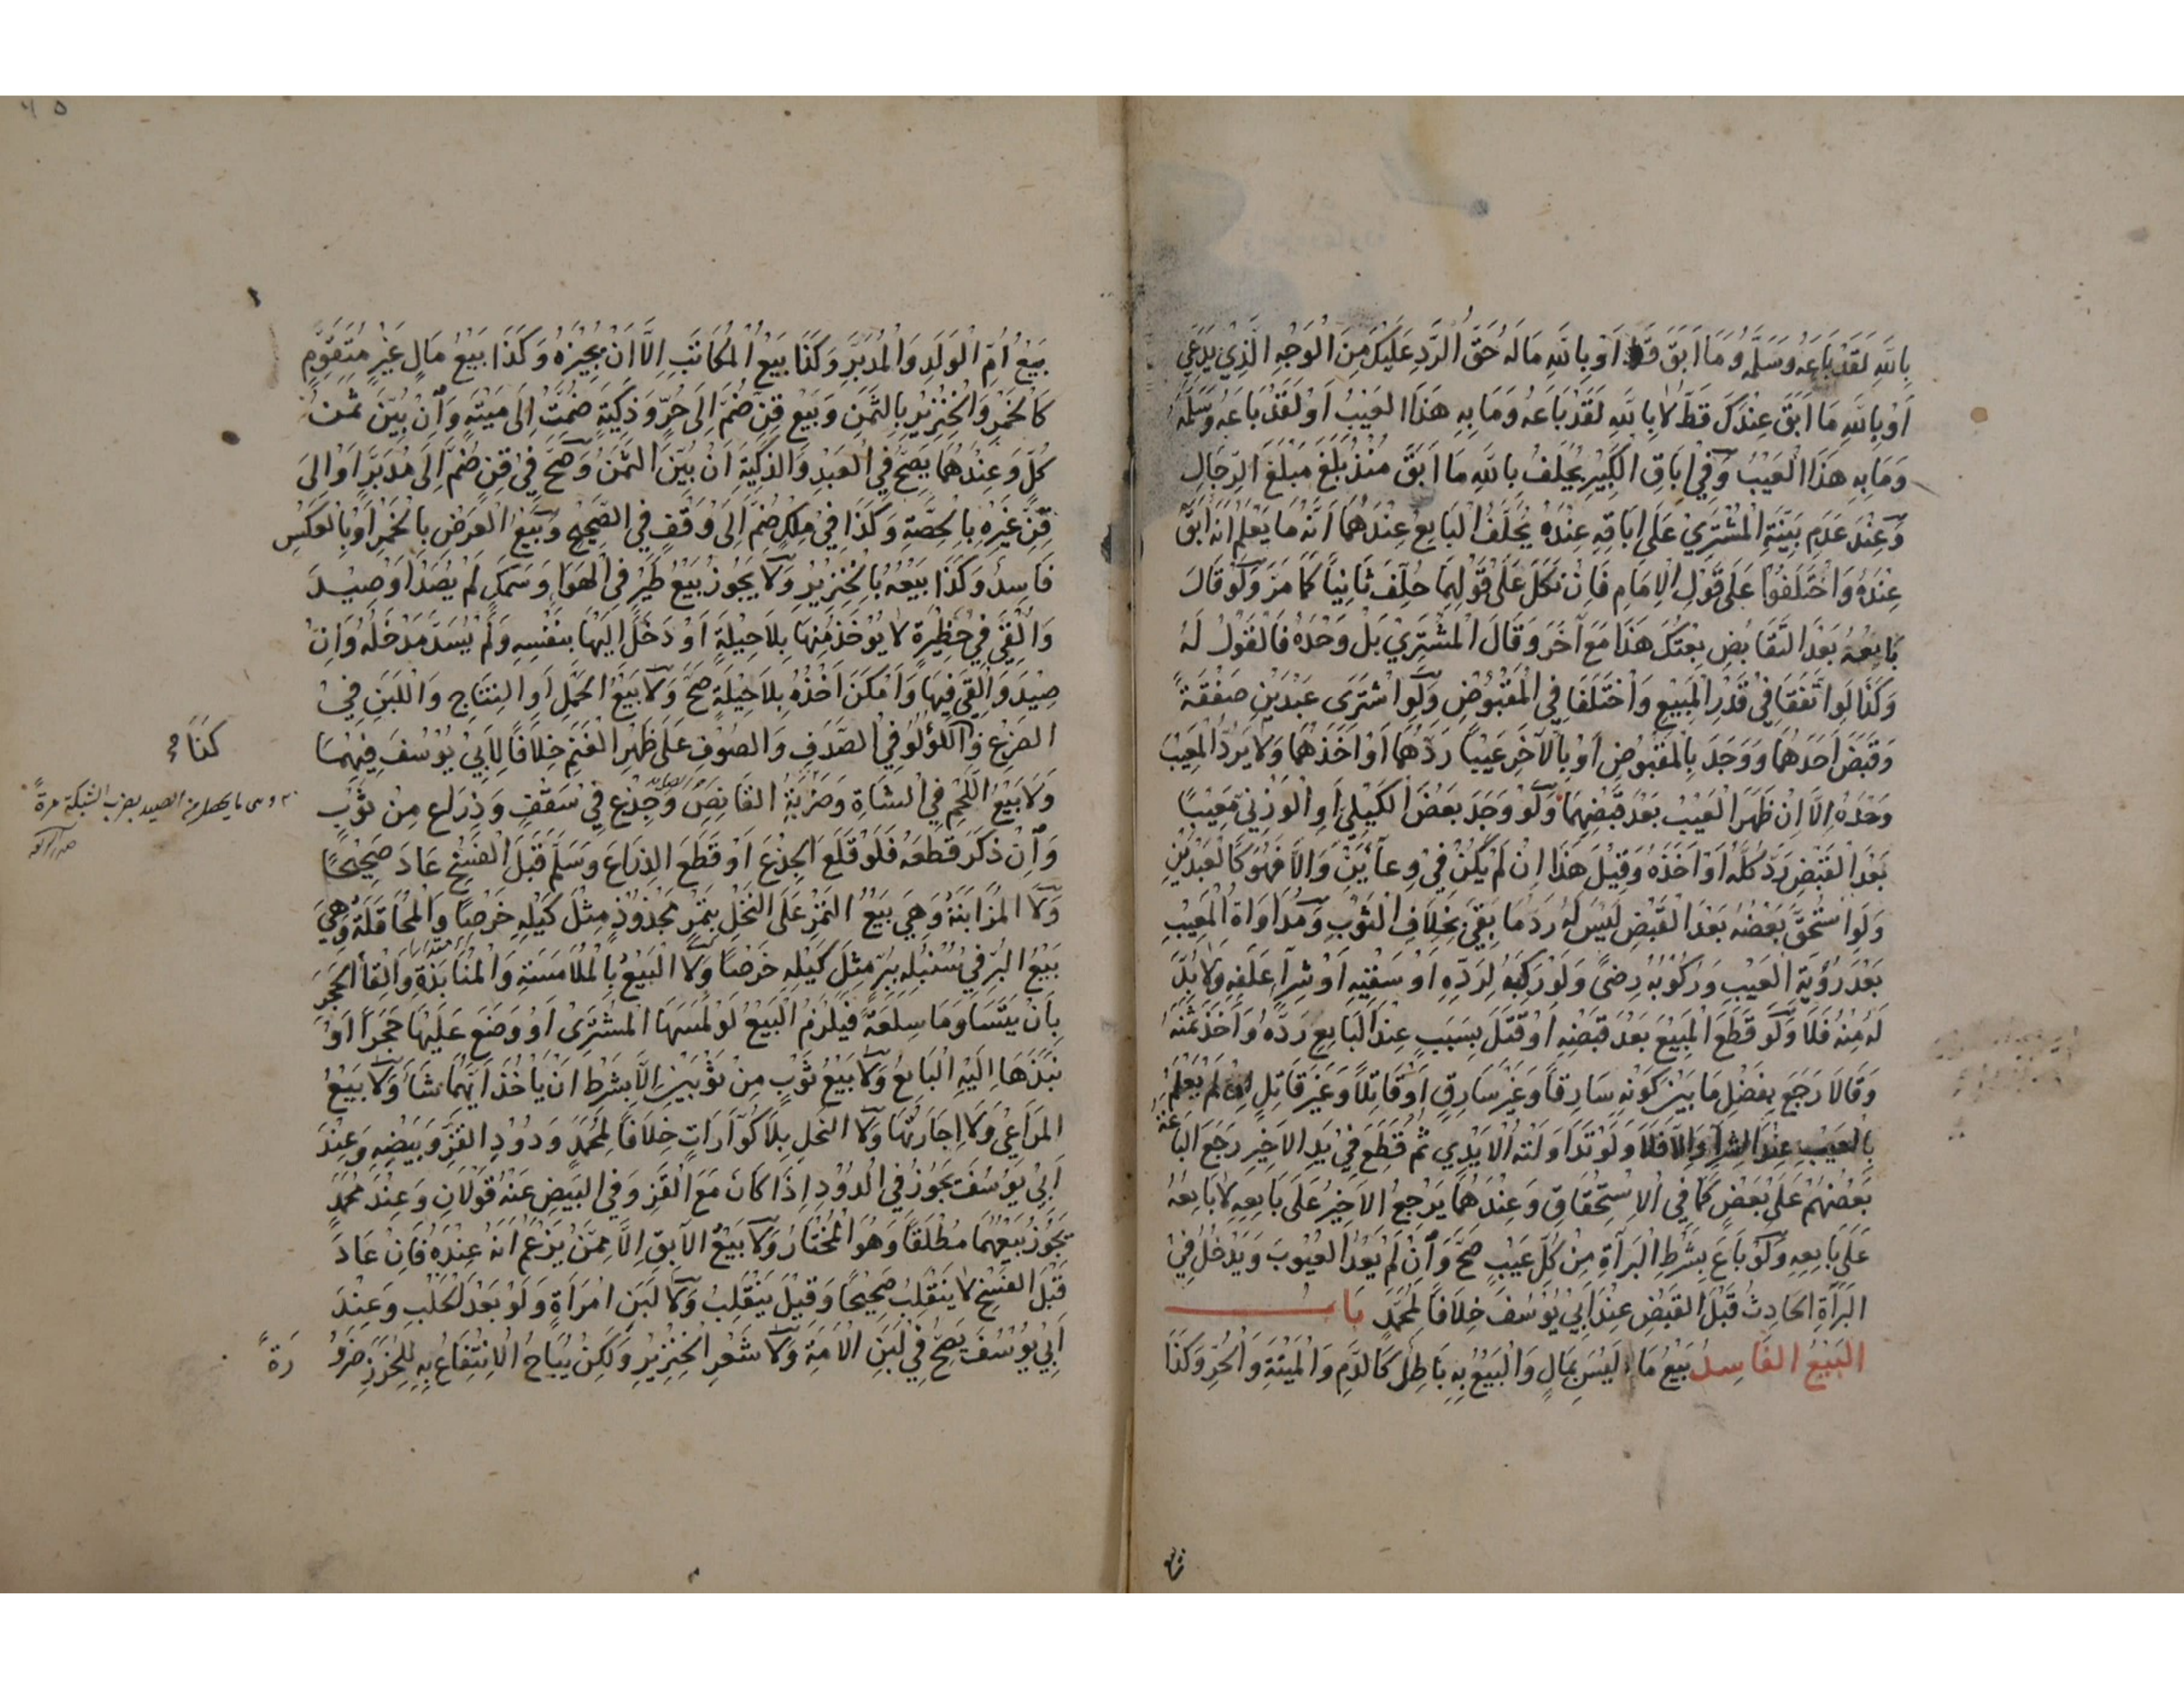 بِاللّٰهِ لَقَدْ بَاعَهُ وَسَلَّمَهُ وَمَا اَبَقَ قَطُّ اَوْ بِاللّٰهِ مَا لَهُ حَقُّ الرَّدِّ عَلَيْكَ مِنَ الْوَجْهِ الَّذِي يَدَّعِي
اَوْ بِاللّٰهِ مَا اَبَقَ عِنْدَكَ قَطُّ لَا بِاللّٰهِ لَقَدْ بَاعَهُ وَمَا بِهِ هَذَا الْعَيْبُ اَوْ لَقَدْ بَاعَهُ وَسَلَّمَهُ
وَمَا بِهِ هَذَا الْعَيْبُ وَفِي اِبَاقِ الْكَبِيْرِ يُحَلَّفُ بِاللّٰهِ مَا اَبَقَ مُنْذُ بَلَغَ مَبْلَغَ الرِّجَالِ
وَعِنْدَ عَدَمِ بَيِّنَةِ الْمُشْتَرِيْ عَلَى اِبَاقِهِ عِنْدَهُ يُحَلَّفُ الْبَايِعُ عِنْدَهُمَا اَنَّهُ مَا يَعْلَمُ اَنَّهُ اَبَقَ
عِنْدَهُ وَاخْتَلَفُوْا عَلَى قَوْلِ الْاِمَامِ فَاِنْ نَكَلَ عَلَى قَوْلِهِمَا حُلِّفَ ثَانِيًا كَمَا مَرَّ وَلَوْ قَالَ
بَايِعُهُ بَعْدَ التَّقَابُضِ بِعْتُكَ هَذَا مَعَ آخَرَ وَقَالَ الْمُشْتَرِيْ بَلْ وَحْدَهُ فَالْقَوْلُ لَهُ
وَكَذَا لَوِ اتَّفَقَا فِيْ قَدْرِ الْمَبِيْعِ وَاخْتَلَفَا فِي الْمَقْبُوْضِ وَلَوِ اشْتَرَى عَبْدَيْنِ صَفْقَةً
وَقَبَضَ اَحَدَهُمَا وَوَجَدَ بِالْمَقْبُوْضِ اَوْ بِالْآخَرِ عَيْبًا رَدَّهُمَا اَوْ اَخَذَهُمَا وَلَا يَرُدُّ الْمَعِيْبَ
وَحْدَهُ اِلَّا اِنْ ظَهَرَ الْعَيْبُ بَعْدَ قَبْضِهِمَا وَلَوْ وَجَدَ بَعْضَ الْكَيْلِيِّ اَوِ الْوَزْنِيِّ مَعِيْبًا
بَعْدَ الْقَبْضِ رَدَّ كُلَّهُ اَوْ اَخَذَهُ وَقِيْلَ هَذَا اِنْ لَمْ يَكُنْ فِيْ وِعَآءَيْنِ وَاِلَّا فَهُوَ كَالْعَبْدَيْنِ
وَلَوِ اسْتُحِقَّ بَعْضُهُ بَعْدَ الْقَبْضِ لَيْسَ لَهُ رَدُّ مَا بَقِيَ بِخِلَافِ الثَّوْبِ وَمُدَاوَاةُ الْمَعِيْبِ
بَعْدَ رُؤْيَةِ الْعَيْبِ وَرُكُوْبُهُ رِضًى وَلَوْ رَكِبَهُ لِرَدِّهِ اَوْ سَقْيِهِ اَوْ شِرَآءِ عَلَفِهِ وَلَا بُدَّ
لَهُ مِنْهُ فَلَا وَلَوْ قُطِعَ الْمَبِيْعُ بَعْدَ قَبْضِهِ اَوْ قُتِلَ بِسَبَبٍ عِنْدَ الْبَايِعِ رَدَّهُ وَاَخَذَ ثَمَنَهُ
وَقَالَا رَجَعَ بِفَضْلِ مَا بَيْنَ كَوْنِهِ سَارِقًا وَغَيْرَ سَارِقٍ اَوْ قَاتِلًا وَغَيْرَ قَاتِلٍ اِنْ لَمْ يَعْلَمْ
بِالْعَيْبِ عِنْدَ الشِّرَآءِ وَاِلَّا فَلَا وَلَوْ تَدَاوَلَتْهُ الْاَيْدِي ثُمَّ قُطِعَ فِيْ يَدِ الْاَخِيْرِ رَجَعَ الْبَاعَةُ
بَعْضُهُمْ عَلَى بَعْضٍ كَمَا فِي الْاِسْتِحْقَاقِ وَعِنْدَهُمَا يَرْجِعُ الْاَخِيْرُ عَلَى بَايِعِهِ لَا بَايِعُهُ
عَلَى بَايِعِهِ وَلَوْ بَاعَ بِشَرْطِ الْبَرَآءَةِ مِنْ كُلِّ عَيْبٍ صَحَّ وَاِنْ لَمْ يَعُدَّ الْعُيُوْبَ وَيَدْخُلُ فِيْ
الْبَرَآءَةِ الْحَادِثُ قَبْلَ الْقَبْضِ عِنْدَ اَبِيْ يُوْسُفَ خِلَافًا لِمُحَمَّدٍ بَابُ
الْبَيْعُ الْفَاسِدُ بَيْعُ مَا لَيْسَ بِمَالٍ وَالْبَيْعُ بِهِ بَاطِلٌ كَالدَّمِ وَالْمَيْتَةِ وَالْحُرِّ وَكَذَا
بَيْعُ اُمِّ الْوَلَدِ وَالْمُدَبَّرِ وَكَذَا بَيْعُ الْمُكَاتَبِ اِلَّا اَنْ يُجِيْزَهُ وَكَذَا بَيْعُ مَالٍ غَيْرِ مُتَقَوَّمٍ
كَالْخَمْرِ وَالْخِنْزِيْرِ بِالثَّمَنِ وَبَيْعُ قِنٍّ ضُمَّ اِلَى حُرٍّ وَذَكِيَّةٍ ضُمَّتْ اِلَى مَيْتَةٍ وَاِنْ بُيِّنَ ثَمَنُ
كُلٍّ وَعِنْدَهُمَا يَصِحُّ فِي الْعَبْدِ وَالذَّكِيَّةِ اَنْ بُيِّنَ الثَّمَنُ وَصَحَّ فِيْ قِنٍّ ضُمَّ اِلَى مُدَبَّرٍ اَوْ اِلَى
قِنِّ غَيْرِهِ بِالْحِصَّةِ وَكَذَا فِيْ مِلْكٍ ضُمَّ اِلَى وَقْفٍ فِي الصَّحِيْحِ وَبَيْعُ الْعَرْضِ بِالْخَمْرِ اَوْ بِالْعَكْسِ
فَاسِدٌ وَكَذَا بَيْعُهُ بِالْخِنْزِيْرِ وَلَا يَجُوْزُ بَيْعُ طَيْرٍ فِي الْهَوَاءِ وَسَمَكٍ لَمْ يُصَدْ اَوْ صِيْدَ
وَاُلْقِيَ فِيْ حَظِيْرَةٍ لَا يُوْخَذُ مِنْهَا بِلَا حِيْلَةٍ اَوْ دَخَلَ اِلَيْهَا بِنَفْسِهِ وَلَمْ يُسَدَّ مَدْخَلُهُ وَاِنْ
صِيْدَ وَاُلْقِيَ فِيْهَا وَاَمْكَنَ اَخْذُهُ بِلَا حِيْلَةٍ صَحَّ وَلَا بَيْعُ الْحَمْلِ اَوِ النِّتَاجِ وَاللَّبَنِ فِيْ
الضَّرْعِ وَاللُّؤْلُؤِ فِي الصَّدَفِ وَالصُّوْفِ عَلَى ظَهْرِ الْغَنَمِ خِلَافًا لِاَبِيْ يُوْسُفَ فِيْهِمَا
وَلَا بَيْعُ اللَّحْمِ فِي الشَّاةِ وَضَرْبَةُ الْقَانِصِ وَجِذْعٍ فِيْ سَقْفٍ وَذِرَاعٍ مِنْ ثَوْبٍ
وَاِنْ ذَكَرَ قَطْعَهُ فَلَوْ قَلَعَ الْجِذْعَ اَوْ قَطَعَ الذِّرَاعَ وَسَلَّمَ قَبْلَ الْفَسْخِ عَادَ صَحِيْحًا
وَلَا الْمُزَابَنَةُ وَهِيَ بَيْعُ الثَّمَرِ عَلَى النَّخْلِ بِتَمْرٍ مَجْذُوْذٍ مِثْلَ كَيْلِهِ خَرْصًا وَالْمُحَاقَلَةُ وَهِيَ
بَيْعُ الْبُرِّ فِيْ سُنْبُلِهِ بِبُرٍّ مِثْلَ كَيْلِهِ خَرْصًا وَلَا الْبَيْعُ بِالْمُلَامَسَةِ وَالْمُنَابَذَةِ وَاِلْقَاءِ الْحَجَرِ
بِاَنْ يَتَسَاوَمَا سِلْعَةً فَيَلْزَمُ الْبَيْعُ لَوْ لَمَسَهَا الْمُشْتَرِيْ اَوْ وَضَعَ عَلَيْهَا حَجَرًا اَوْ
نَبَذَهَا اِلَيْهِ الْبَايِعُ وَلَا بَيْعُ ثَوْبٍ مِنْ ثَوْبَيْنِ اِلَّا بِشَرْطِ اَنْ يَاْخُذَ اَيَّهُمَا شَاءَ وَلَا بَيْعُ
الْمَرَاعِيْ وَلَا اِجَارَتُهَا وَلَا النَّحْلِ بِلَا كُوَّارَاتٍ خِلَافًا لِمُحَمَّدٍ وَدُوْدِ الْقَزِّ وَبَيْضِهِ وَعِنْدَ
اَبِيْ يُوْسُفَ يَجُوْزُ فِي الدُّوْدِ اِذَا كَانَ مَعَ الْقَزِّ وَفِي الْبَيْضِ عَنْهُ قَوْلَانِ وَعِنْدَ مُحَمَّدٍ
يَجُوْزُ بَيْعُهُمَا مُطْلَقًا وَهُوَ الْمُخْتَارُ وَلَا بَيْعُ الْآبِقِ اِلَّا مِمَّنْ يَزْعُمُ اَنَّهُ عِنْدَهُ فَاِنْ عَادَ
قَبْلَ الْفَسْخِ لَا يَنْقَلِبُ صَحِيْحًا وَقِيْلَ يَنْقَلِبُ وَلَا لَبَنِ امْرَاَةٍ وَلَوْ بَعْدَ الْحَلْبِ وَعِنْدَ
اَبِيْ يُوْسُفَ يَصِحُّ فِيْ لَبَنِ الْاَمَةِ وَلَا شَعْرِ الْخِنْزِيْرِ وَلَكِنْ يُبَاحُ الْاِنْتِفَاعُ بِهِ لِلْخَرْزِ ضَرُوْ
رَةً
كَذَا
ما يحصل من الصيد بضرب الشبكة مرة